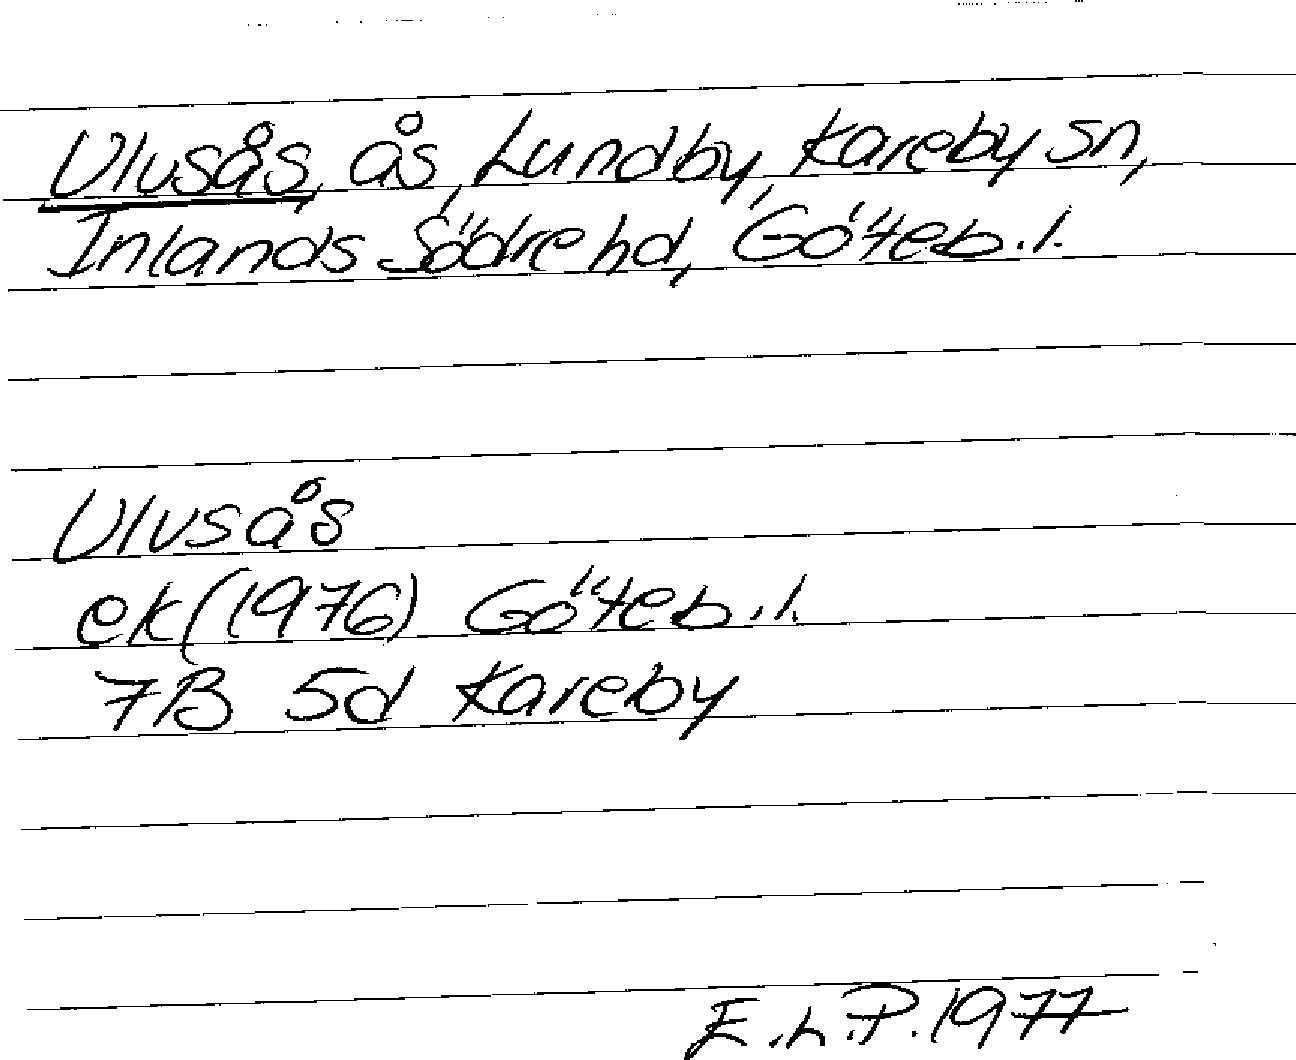 Ulusås, ås, Lundby, Kareby sn,
Inlands Södre hd, Göteb.l.
Ulvsås
ek (1976) Göteb.l.
7B 5d Kareby
E.L.P. 1977